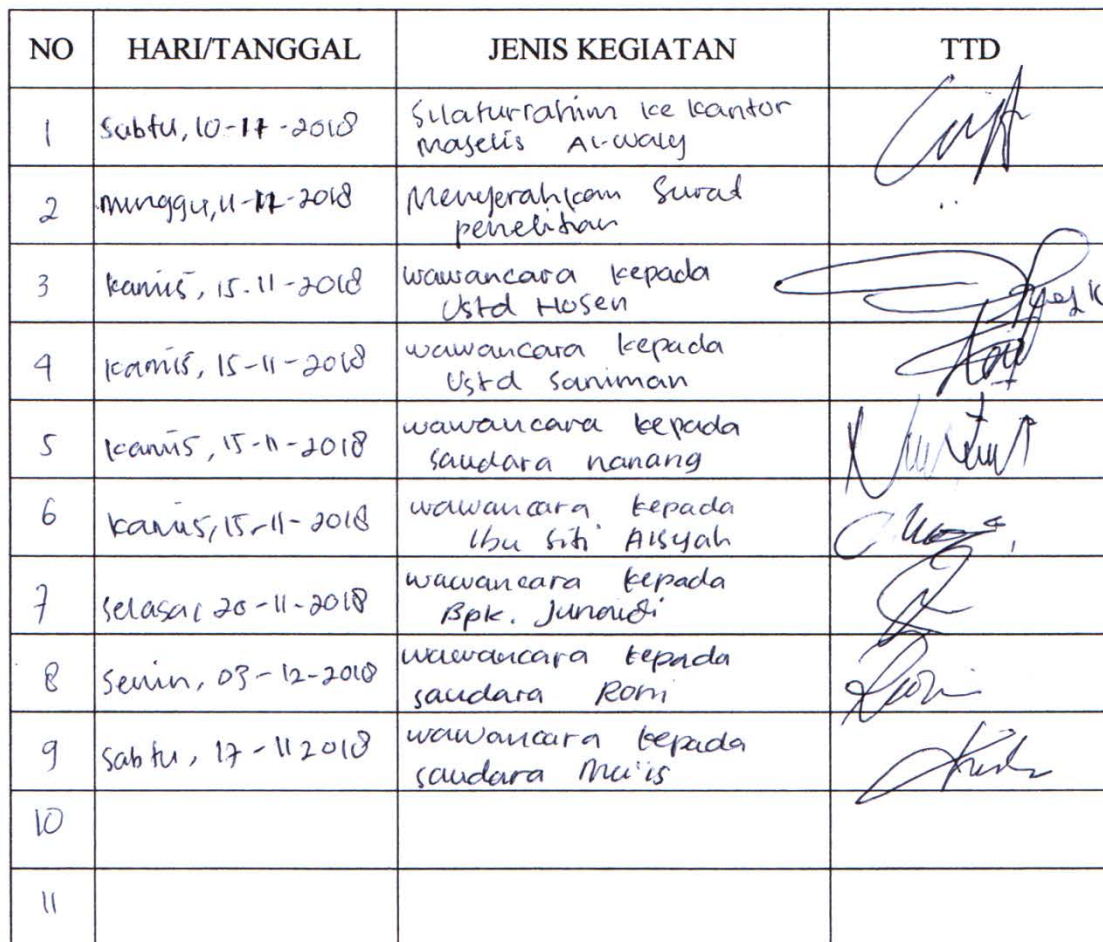 NO HARI/TANGGAL JENIS KEGIATAN TTD
1 Sabtu, 10-11-2018 Silaturrahim ke kantor
Majelis Al-Waly
2 Minggu, 11-11-2018 Menyerahkan Surat
penelitian
3 kamis, 15.11-2018 wawancara kepada
Ustd Hosen
4 kamis, 15-11-2018 wawancara kepada
Ustd Saniman
5 kamis, 15-11-2018 wawancara kepada
saudara nanang
6 kamis, 15-11-2018 wawancara kepada
Ibu Siti Aisyah
7 selasa, 20-11-2018 wawancara kepada
Bpk. Junaidi
8 Senin, 03-12-2018 wawancara kepada
saudara Roni
9 Sabtu, 17-11 2018 wawancara kepada
saudara Mu'is
10
11